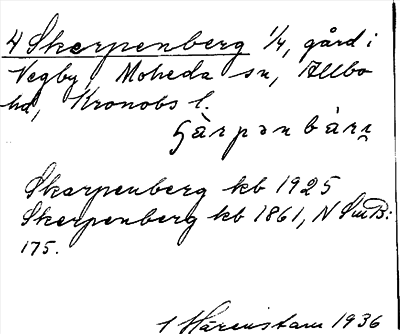 4 Skerpenberg 1/4, gård i
Vegby Moheda sn, Allbo
hd, Kronobs l.
Skarpenberg kb 1925
Skerpenberg kb 1861, N SmB:
175.
1 Härenstam 1936